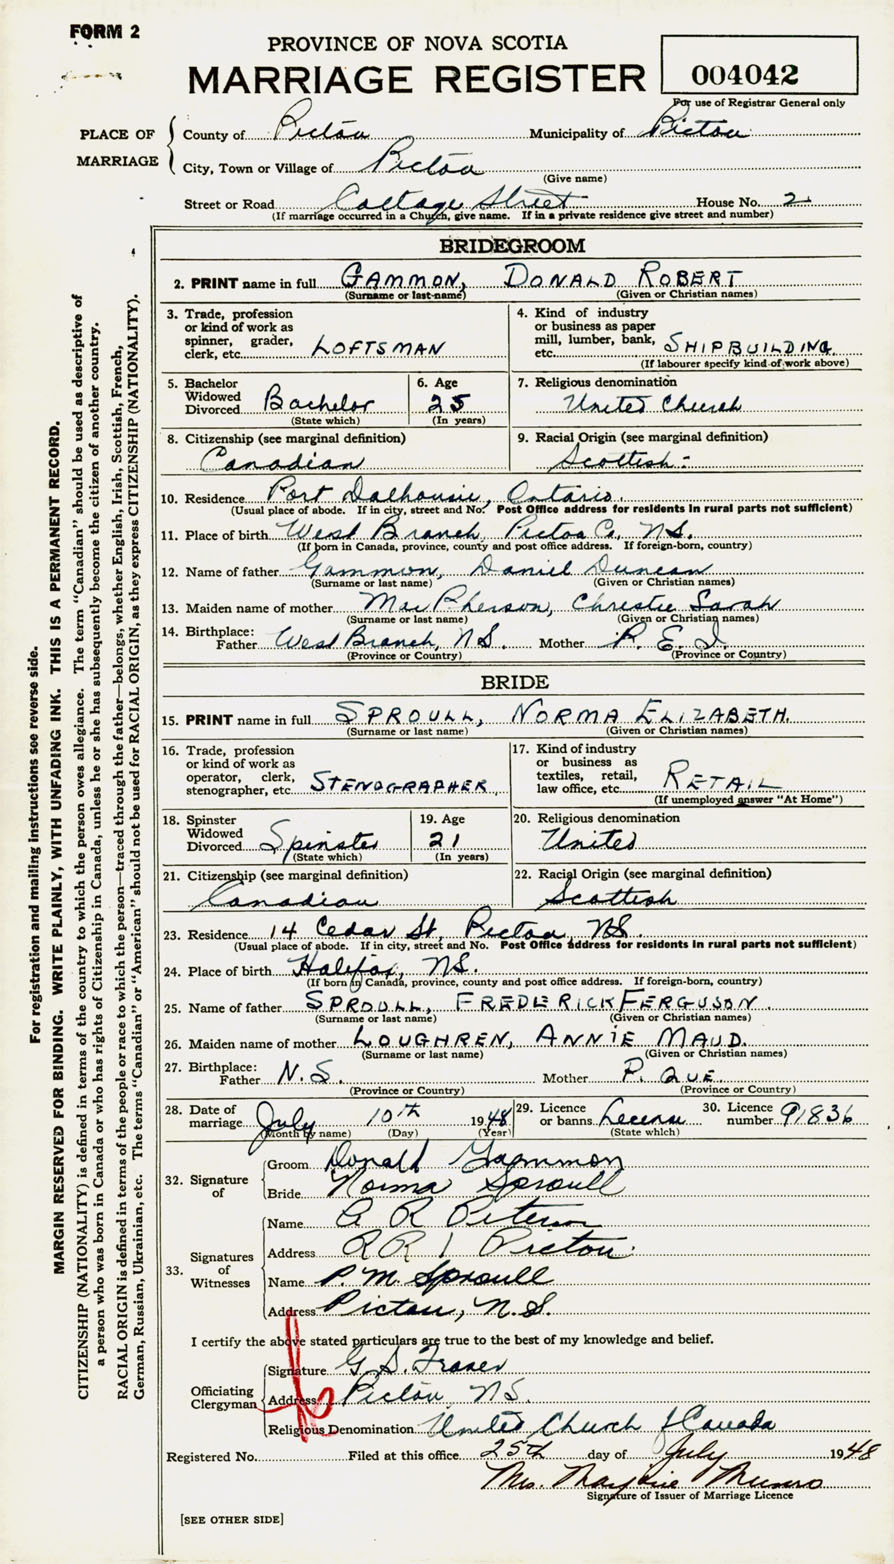 FORM 2
PROVINCE OF NOVA SCOTIA
MARRIAGE REGISTER
004042
For use of Registrar General only
PLACE OF MARRIAGE
County of Pictou Municipality of Pictou
City, Town or Village of Pictou
(Give name)
Street or Road Cottage Street House No. 2
(If marriage occurred in a Church, give name. If in a private residence give street and number)
BRIDEGROOM
2. PRINT name in full GAMMON, DONALD ROBERT
(Surname or last name) (Given or Christian names)
3. Trade, profession or kind of work as spinner, grader, clerk, etc. LOFTSMAN
4. Kind of industry or business as paper mill, lumber, bank, etc. SHIPBUILDING
(If labourer specify kind of work above)
5. Bachelor Widowed Divorced Bachelor
(State which)
6. Age 25
(In years)
7. Religious denomination
United Church
8. Citizenship (see marginal definition)
Canadian
9. Racial Origin (see marginal definition)
Scottish
10. Residence Port Dalhousie, Ontario.
(Usual place of abode. If in city, street and No. Post Office address for residents in rural parts not sufficient)
11. Place of birth West Branch, Pictou Co., N.S.
(If born in Canada, province, county and post office address. If foreign-born, country)
12. Name of father Gammon, Daniel Duncan
(Surname or last name) (Given or Christian names)
13. Maiden name of mother MacPherson, Christie Sarah
(Surname or last name) (Given or Christian names)
14. Birthplace: Father West Branch, N.S. Mother P.E.I.
(Province or Country) (Province or Country)
BRIDE
15. PRINT name in full SPROULL, NORMA ELIZABETH.
(Surname or last name) (Given or Christian names)
16. Trade, profession or kind of work as operator, clerk, stenographer, etc. STENOGRAPHER
17. Kind of industry or business as textiles, retail, law office, etc. RETAIL
(If unemployed answer "At Home")
18. Spinster Widowed Divorced Spinster
(State which)
19. Age 21
(In years)
20. Religious denomination
United
21. Citizenship (see marginal definition)
Canadian
22. Racial Origin (see marginal definition)
Scottish
23. Residence 14 Cedar St, Pictou, N.S.
(Usual place of abode. If in city, street and No. Post Office address for residents in rural parts not sufficient)
24. Place of birth Halifax, N.S.
(If born in Canada, province, county and post office address. If foreign-born, country)
25. Name of father SPROULL, FREDERICK FERGUSON.
(Surname or last name) (Given or Christian names)
26. Maiden name of mother LOUGHREN, ANNIE MAUD.
(Surname or last name) (Given or Christian names)
27. Birthplace: Father N.S. Mother P. QUE.
(Province or Country) (Province or Country)
28. Date of marriage July 10th 1948
(Month by name) (Day) (Year)
29. Licence or banns License
(State which)
30. Licence number 91836
32. Signature of
Groom Donald Gammon
Bride Norma Sproull
33. Signatures of Witnesses
Name A R Peterson
Address R R 1 Pictou
Name P. M. Sproull
Address Pictou, N.S.
I certify the above stated particulars are true to the best of my knowledge and belief.
Officiating Clergyman
Signature G. S. Fraser
Address Pictou N.S.
Religious Denomination United Church of Canada
Registered No. Filed at this office 25th day of July 1948
Mrs. Marjorie Munro
Signature of Issuer of Marriage Licence
[SEE OTHER SIDE]
For registration and mailing instructions see reverse side.
MARGIN RESERVED FOR BINDING. WRITE PLAINLY, WITH UNFADING INK. THIS IS A PERMANENT RECORD.
CITIZENSHIP (NATIONALITY) is defined in terms of the country to which the person owes allegiance. The term "Canadian" should be used as descriptive of
a person who was born in Canada or who has rights of Citizenship in Canada, unless he or she has subsequently become the citizen of another country.
RACIAL ORIGIN is defined in terms of the people or race to which the person—traced through the father—belongs, whether English, Irish, Scottish, French,
German, Russian, Ukrainian, etc. The terms "Canadian" or "American" should not be used for RACIAL ORIGIN, as they express CITIZENSHIP (NATIONALITY).